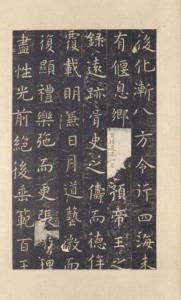 後化漸八方令行四海未
有偃息鄉預帝王之
錄遠跡胥史之儔而德侔
覆載明兼日月道藝微而
復顯禮樂弛而更張理
盡性光前絕後垂範百王